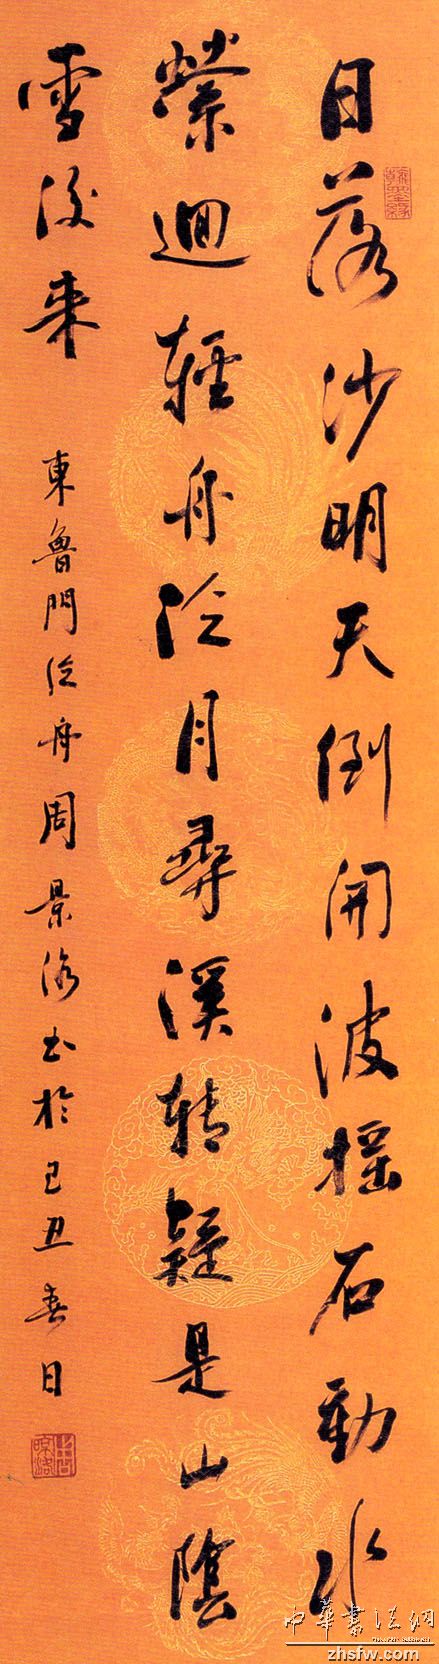 日落沙明天倒開波搖石動水
縈迴輕舟泛月尋溪轉疑是山陰
雪後来
東魯門泛舟周景洛書於己丑春日
中华书法网
zhsfw.com